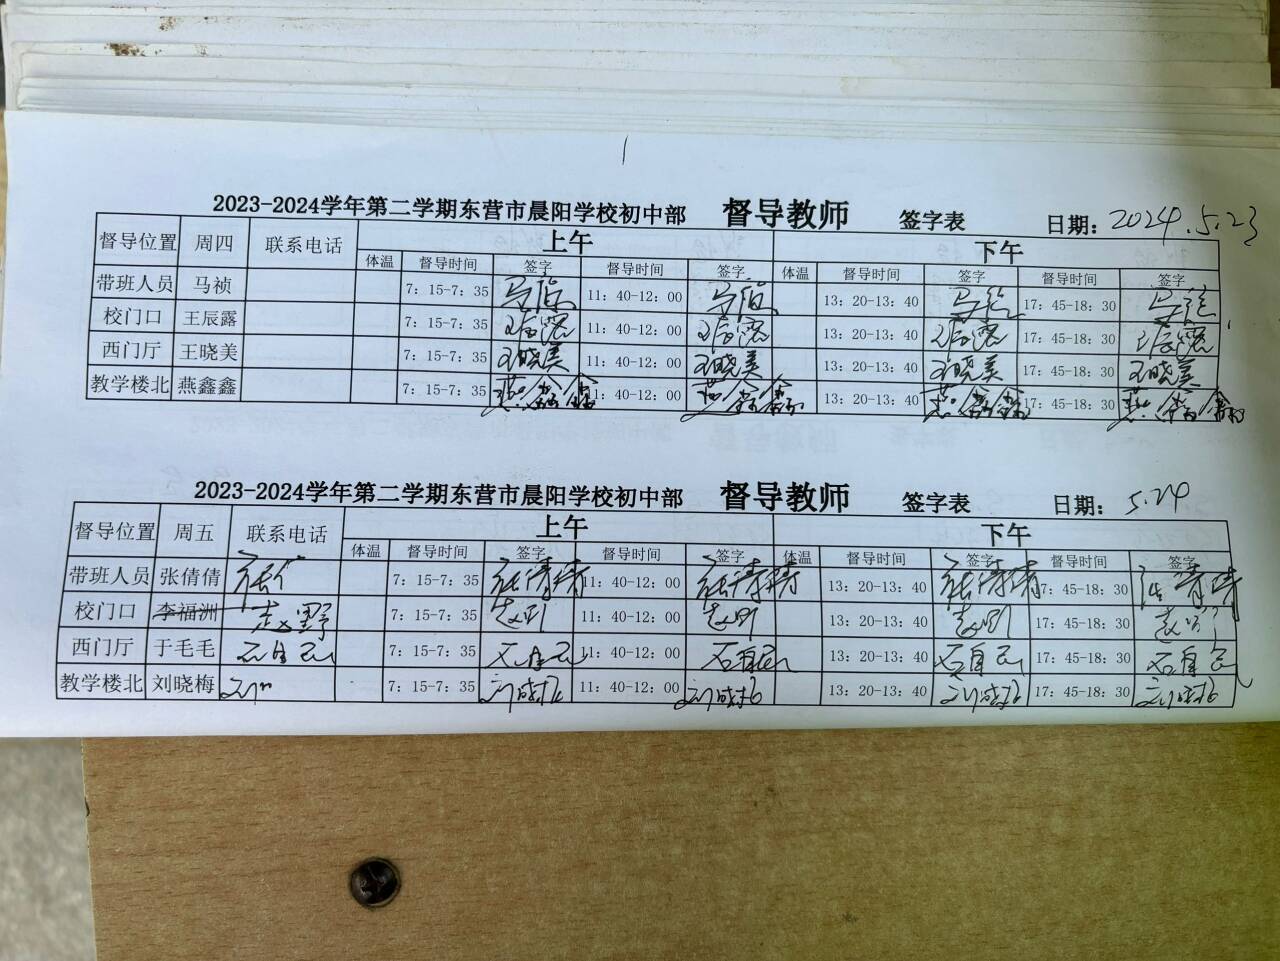 1
2023-2024学年第二学期东营市晨阳学校初中部 督导教师 签字表 日期: 2024.5.23
督导位置 周四 联系电话 上午 下午
体温 督导时间 签字 督导时间 签字 体温 督导时间 签字 督导时间 签字
带班人员 马祯 7: 15-7: 35 马祯 11: 40-12: 00 马祯 13: 20-13: 40 马祯 17: 45-18: 30 马祯
校门口 王辰露 7: 15-7: 35 王辰露 11: 40-12: 00 王辰露 13: 20-13: 40 王辰露 17: 45-18: 30 王辰露
西门厅 王晓美 7: 15-7: 35 王晓美 11: 40-12: 00 王晓美 13: 20-13: 40 王晓美 17: 45-18: 30 王晓美
教学楼北 燕鑫鑫 7: 15-7: 35 燕鑫鑫 11: 40-12: 00 燕鑫鑫 13: 20-13: 40 燕鑫鑫 17: 45-18: 30 燕鑫鑫
2023-2024学年第二学期东营市晨阳学校初中部 督导教师 签字表 日期: 5.24
督导位置 周五 联系电话 上午 下午
体温 督导时间 签字 督导时间 签字 体温 督导时间 签字 督导时间 签字
带班人员 张倩倩 7: 15-7: 35 张倩倩 11: 40-12: 00 张倩倩 13: 20-13: 40 张倩倩 17: 45-18: 30 张倩倩
校门口 李福洲 赵野 7: 15-7: 35 11: 40-12: 00 13: 20-13: 40 17: 45-18: 30
西门厅 于毛毛 7: 15-7: 35 11: 40-12: 00 13: 20-13: 40 17: 45-18: 30
教学楼北 刘晓梅 7: 15-7: 35 刘晓梅 11: 40-12: 00 刘晓梅 13: 20-13: 40 刘晓梅 17: 45-18: 30 刘晓梅